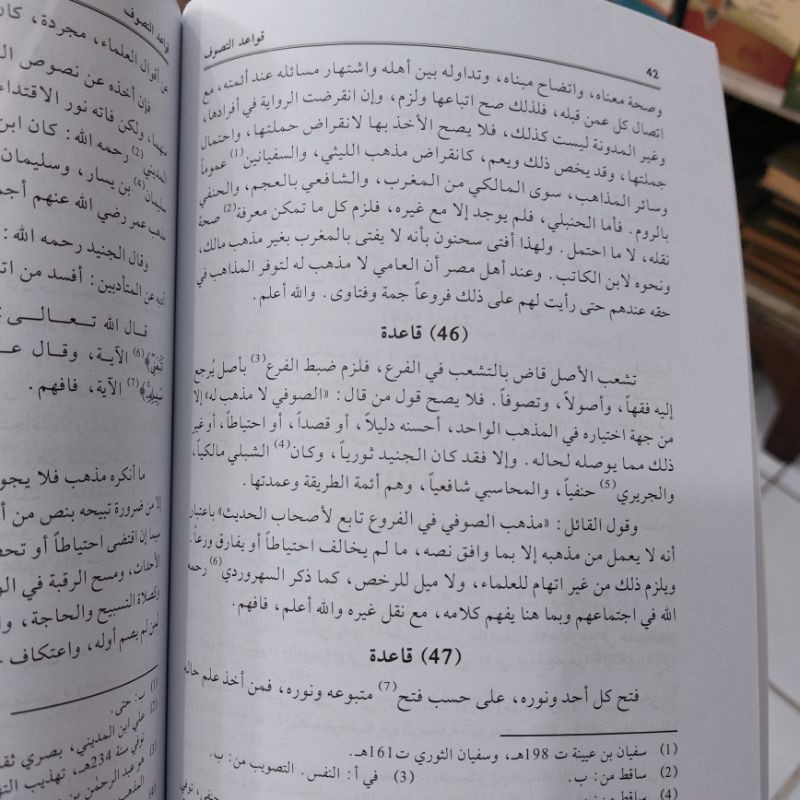 قواعد التصوف
42
وصحة معناه، واتضاح مبناه، وتداوله بين أهله واشتهار مسائله عند أئمته، مع
اتصال كل عمن قبله، فلذلك صح اتباعها ولزم، وإن انقرضت الرواية في أفرادها،
وغير المدونة ليست كذلك، فلا يصح الأخذ بها لانقراض حملتها، واحتمال
جملتها، وقد يخص ذلك ويعم، كانقراض مذهب الليثي، والسفيانين(1) عموماً
وسائر المذاهب، سوى المالكي من المغرب، والشافعي بالعجم، والحنفي
بالروم. فأما الحنبلي، فلم يوجد إلا مع غيره، فلزم كل ما تمكن معرفة(2) صحة
نقله، لا ما احتمل. ولهذا أفتى سحنون بأنه لا يفتى بالمغرب بغير مذهب مالك،
ونحوه لابن الكاتب. وعند أهل مصر أن العامي لا مذهب له لتوفر المذاهب في
حقه عندهم حتى رأيت لهم على ذلك فروعاً جمة وفتاوى. والله أعلم.
(46) قاعدة
تشعب الأصل قاض بالتشعب في الفرع، فلزم ضبط الفرع(3) بأصل يُرجع
إليه فقهاً، وأصولاً، وتصوفاً. فلا يصح قول من قال: «الصوفي لا مذهب له» إلا
من جهة اختياره في المذهب الواحد، أحسنه دليلاً، أو قصداً، أو احتياطاً، أو غير
ذلك مما يوصله لحاله. وإلا فقد كان الجنيد ثورياً، وكان(4) الشبلي مالكياً،
والجريري(5) حنفياً، والمحاسبي شافعياً، وهم أئمة الطريقة وعمدتها.
وقول القائل: «مذهب الصوفي في الفروع تابع لأصحاب الحديث» باعتبار
أنه لا يعمل من مذهبه إلا بما وافق نصه، ما لم يخالف احتياطاً أو يفارق ورعاً.
ويلزم ذلك من غير اتهام للعلماء، ولا ميل للرخص، كما ذكر السهروردي(6) رحمه
الله في اجتماعهم وبما هنا يفهم كلامه، مع نقل غيره والله أعلم، فافهم.
(47) قاعدة
فتح كل أحد ونوره، على حسب فتح(7) متبوعه ونوره، فمن أخذ علم حاله
(1) سفيان بن عيينة ت 198هـ، وسفيان الثوري ت161هـ.
(2) ساقط من: ب. (3) في أ: النفس. التصويب من: ب.
(4) ساقط من: ب.
قواعد التصوف
من أقوال العلماء، مجردة، كان
فإن أخذه عن نصوص ال
ولكن فاته نور الاقتداء
المديني(2) رحمه الله: كان ابن
سليمان(4) بن يسار، وسليمان
مذهب عمر رضي الله عنهم أجم
وقال الجنيد رحمه الله:
عن المتأدبين: أفسد من ات
قال الله تعالى
(6) الآية، وقال عـ
(7) الآية، فافهم.
ما أنكره مذهب فلا يجو
إلا من ضرورة تبيحه بنص من أ
سيما إن اقتضى احتياطاً أو تحص
الأحداث، ومسح الرقبة في الو
وكصلاة التسبيح والحاجة، وا
لمن لم يصم أوله، واعتكاف
(1) ب: حتى.
(2) علي ابن المديني، بصري ثقة
توفي سنة 234هـ، تهذيب الت
(3) هو عبد الرحمن بن